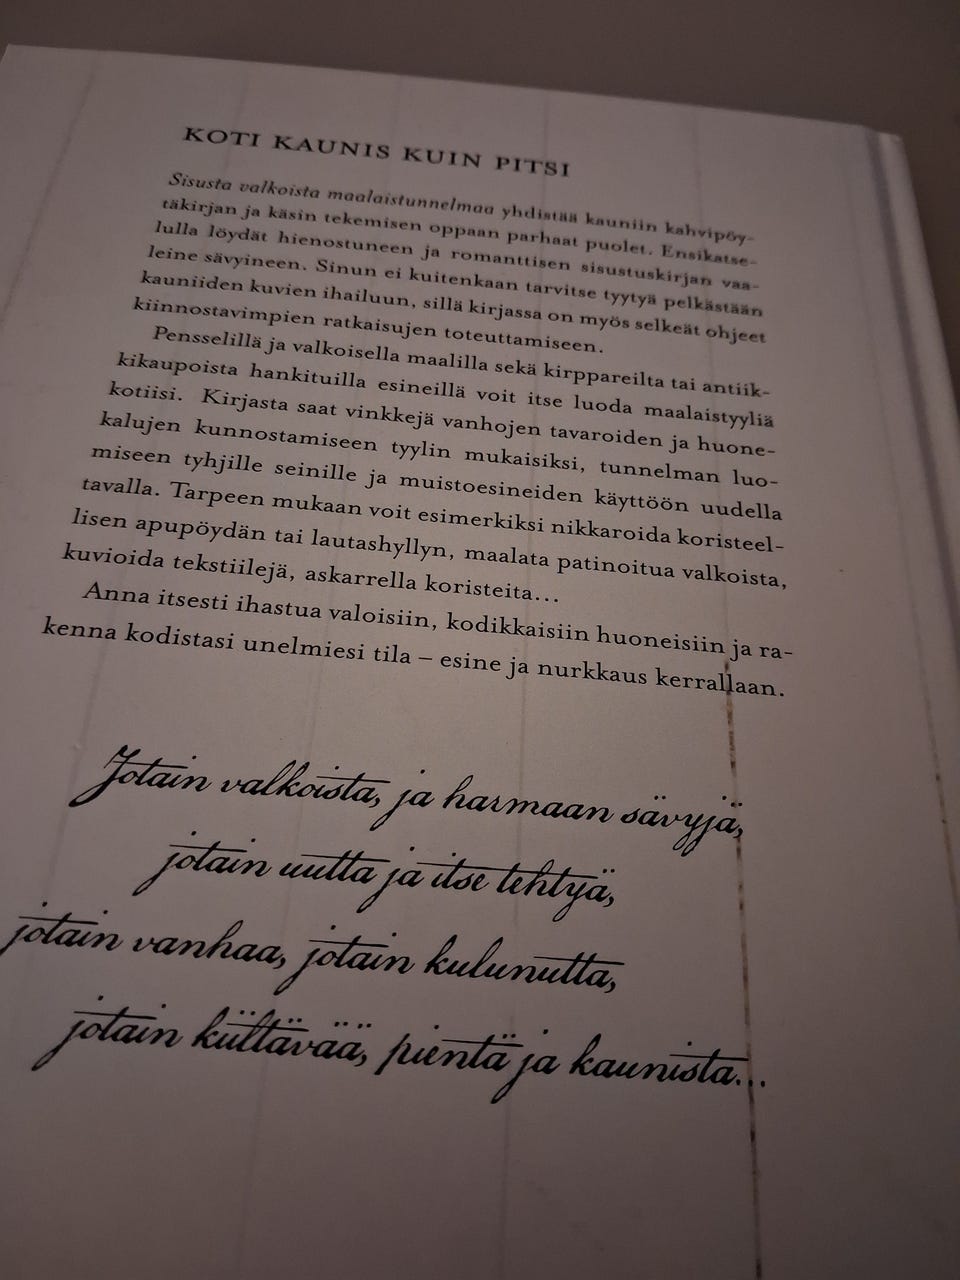 KOTI KAUNIS KUIN PITSI
Sisusta valkoista maalaistunnelmaa yhdistää kauniin kahvipöy-
täkirjan ja käsin tekemisen oppaan parhaat puolet. Ensikatse-
lulla löydät hienostuneen ja romanttisen sisustuskirjan vaa-
leine sävyineen. Sinun ei kuitenkaan tarvitse tyytyä pelkästään
kauniiden kuvien ihailuun, sillä kirjassa on myös selkeät ohjeet
kiinnostavimpien ratkaisujen toteuttamiseen.
Pensselillä ja valkoisella maalilla sekä kirppareilta tai antiik-
kikaupoista hankituilla esineillä voit itse luoda maalaistyyliä
kotiisi. Kirjasta saat vinkkejä vanhojen tavaroiden ja huone-
kalujen kunnostamiseen tyylin mukaisiksi, tunnelman luo-
miseen tyhjille seinille ja muistoesineiden käyttöön uudella
tavalla. Tarpeen mukaan voit esimerkiksi nikkaroida koristeel-
lisen apupöydän tai lautashyllyn, maalata patinoitua valkoista,
kuvioida tekstiilejä, askarrella koristeita...
Anna itsesti ihastua valoisiin, kodikkaisiin huoneisiin ja ra-
kenna kodistasi unelmiesi tila – esine ja nurkkaus kerrallaan.
Jotain valkoista, ja harmaan sävyjä,
jotain uutta ja itse tehtyä,
jotain vanhaa, jotain kulunutta,
jotain kiiltävää, pientä ja kaunista...